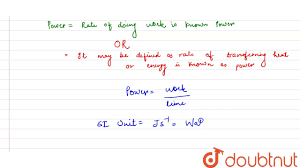 Power = Rate of doing work is known Power
OR
* It may be defined as rate of transferring heat
or energy is known as power
Power = work
time
SI Unit = Js⁻¹ = Watt
doubtnut